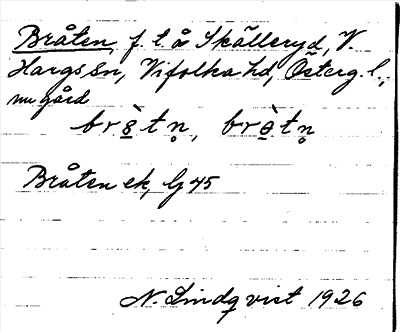 Bråten, f. t. å Skälleryd, V.
Hargs sn, Vifolka hd, Österg. l.,
nu gård
brò̱tn̥, brò̱tn̥
Bråten ek, Gj 45
N. Lindqvist 1926